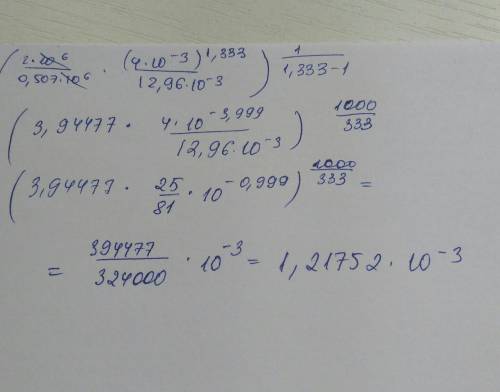 (2·10⁶ / 0,507·10⁶ · (4·10⁻³)^1,333 / 12,96·10⁻³)^1/(1,333-1)
(3,94477 · 4·10^-3,999 / 12,96·10⁻³)^1000/333
(3,94477 · 25/81 · 10^-0,999)^1000/333 =
= 394477/324000 · 10⁻³ = 1,21752·10⁻³